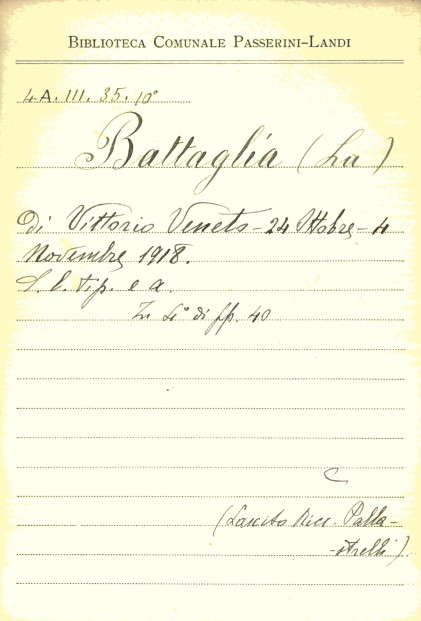 BIBLIOTECA COMUNALE PASSERINI-LANDI
4A. III. 35. 10°
Battaglia (La)
Di Vittorio Veneto - 24 Ottobre - 4
Novembre 1918.
S. l. tip. e a.
In 4° di pp. 40
C
(Lascito Palla-
-strelli).